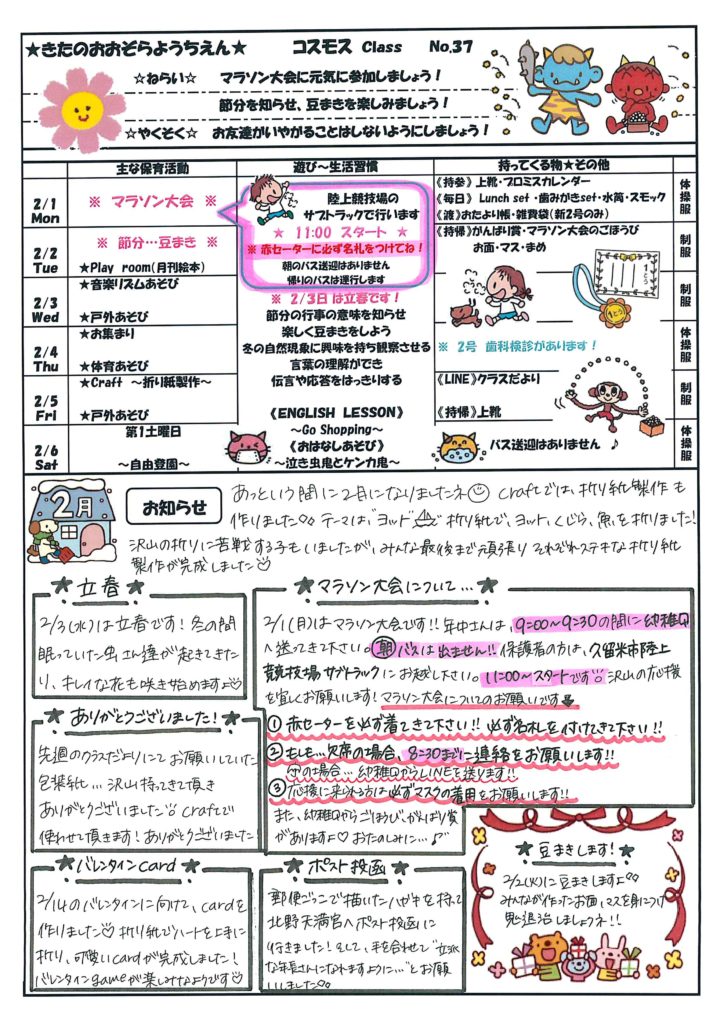 ★きたのおおぞらようちえん★　コスモス Class　No.37
☆ねらい☆　マラソン大会に元気に参加しましょう！
節分を知らせ、豆まきを楽しみましょう！
☆やくそく☆　お友達がいやがることはしないようにしましょう！
主な保育活動　遊び～生活習慣　持ってくる物★その他
2/1 Mon
※ マラソン大会 ※
陸上競技場の
サブトラックで行います
★ 11:00 スタート ★
※ 赤セーターに必ず名札をつけてね！
朝のバス送迎はありません
帰りのバスは運行します
《持参》上靴・プロミスカレンダー
《毎日》 Lunch set ・歯みがきset・水筒・スモック
《渡》おたより帳・雑費袋(新2号のみ)
体操服
2/2 Tue
※ 節分…豆まき ※
★Play room(月刊絵本)
《持帰》がんばり賞・マラソン大会のごほうび
お面・マス・まめ
制服
2/3 Wed
★音楽リズムあそび
★戸外あそび
※ 2/3日 は立春です！
節分の行事の意味を知らせ
楽しく豆まきをしよう
制服
2/4 Thu
★お集まり
★体育あそび
冬の自然現象に興味を持ち観察させる
言葉の理解ができ
伝言や応答をはっきりする
※ 2号 歯科検診があります！
体操服
2/5 Fri
★Craft ～折り紙製作～
★戸外あそび
《ENGLISH LESSON》
～Go Shopping～
《LINE》クラスだより
《持帰》上靴
制服
2/6 Sat
第1土曜日
～自由登園～
《おはなしあそび》
～泣き虫鬼とケンカ鬼～
バス送迎はありません ♪
体操服
2月
お知らせ
あっという間に2月になりましたネ☺ craftでは、折り紙製作も
作りました。 テーマは、"ヨット" 折り紙で、ヨット、くじら、魚を折りました!
沢山の折りに苦戦する子もいましたが、みんな最後まで頑張り それぞれステキな折り紙
製作が完成しました♡
★立春★
2/3(水)は立春です！冬の間
眠っていた虫さん達が起きてきた
り、キレイな花も咲き始めますよ♡
★マラソン大会について…★
2/1(月)はマラソン大会です!! 年中さんは、9:00～9:30の間に幼稚園
へ送ってきて下さい。朝バスは出ません!! 保護者の方は、久留米市陸上
競技場サブトラックにお越し下さい。11:00～スタートです。沢山の応援
を宜しくお願いします! マラソン大会についてのお願いです
① 赤セーターを必ず着てきて下さい!! 必ず名札を付けてきて下さい!!
② もしも…欠席の場合、8:30までに連絡をお願いします!!
雨の場合…幼稚園からLINEを送ります!!
③ 応援に来られる方は必ずマスクの着用をお願いします!!
また、幼稚園からごほうび、がんばり賞
がありますよ♡ おたのしみに…♪
★ありがとうございました！★
先週のクラスだよりにてお願いしていた
包装紙… 沢山持ってきて頂き
ありがとうございました。craftで
使わせて頂きます！ありがとうございました！
★バレンタインcard★
2/14のバレンタインに向けて、cardを
作りました♡ 折り紙でハートを上手に
折り、可愛いcardが完成しました！
バレンタインgameが楽しみなようです♡
★ポスト投函★
郵便ごっこで描いたハガキを持って
北野天満宮へポスト投函に
行きました！そして、手を合せて"立派
な年長さんになれますように…"とお願
いしました。
★豆まきします！★
2/2(火)に豆まきしますよ。
みんなが作ったお面、マスを身につけ
鬼退治しましょうネ!!